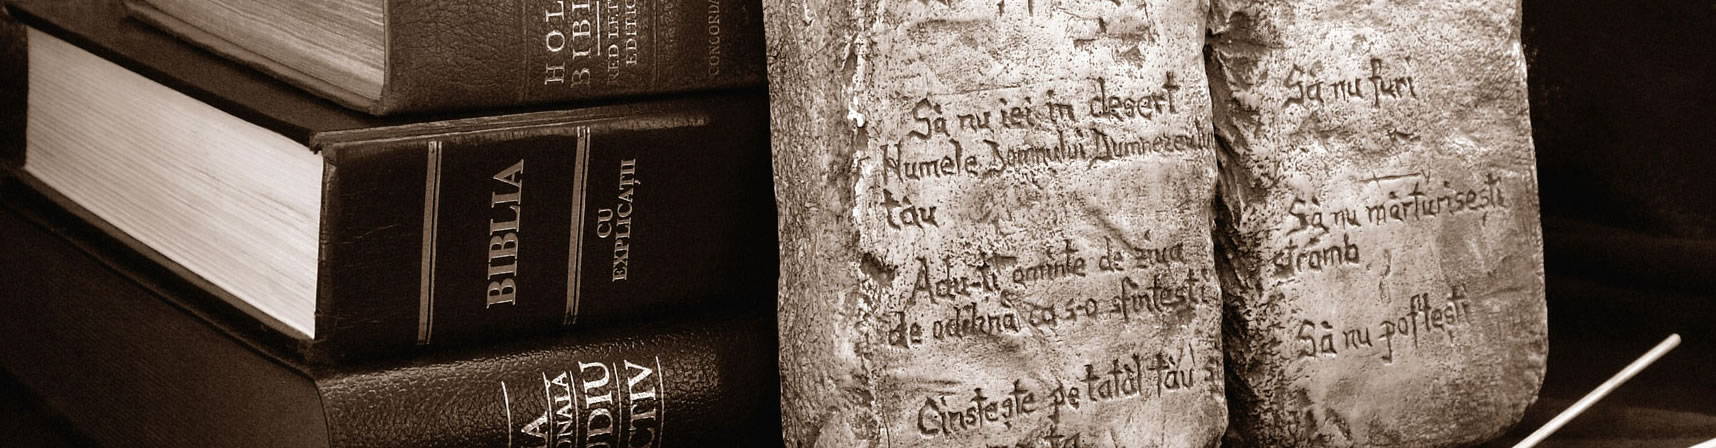 HOL
BIBL
RED LET
EDITIO
CONCORDA
BIBLIA
CU
EXPLICAȚII
A
ONALA
UDIU
CTIV
Să nu iei în deșert
Numele Domnului Dumnezeului
tău
Adu-ți aminte de ziua
de odihnă ca s-o sfințești
Cinstește pe tatăl tău
Să nu furi
Să nu mărturisești
strâmb
Să nu poftești